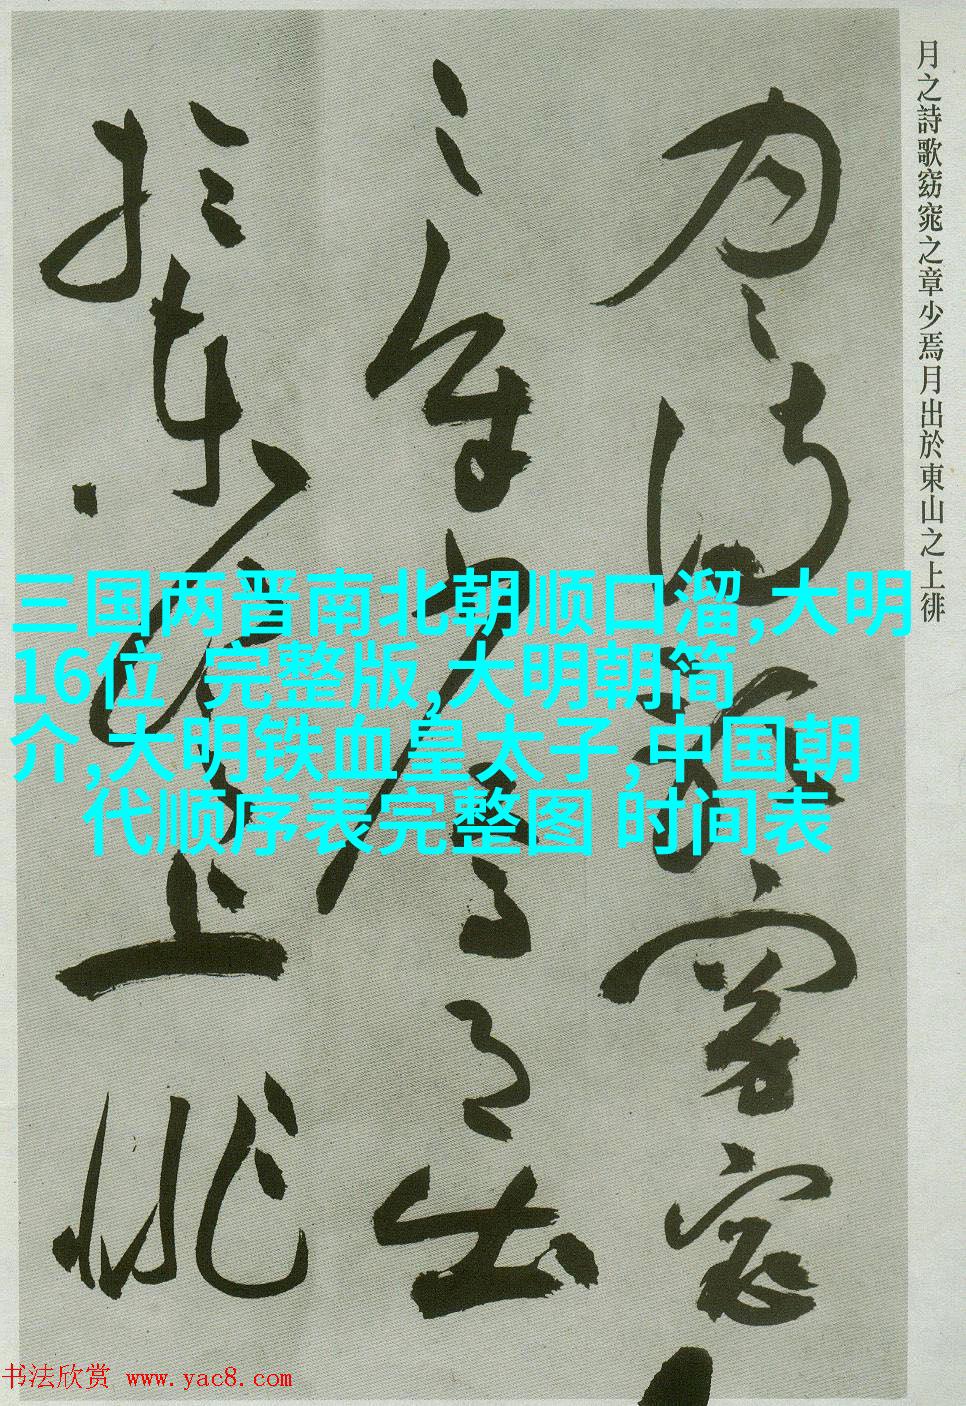 月之詩歌窈窕之章少焉月出於東山之上徘
月之詩歌窈窕
之章少焉月出
於東山之上徘
三国两晋南北朝顺口溜,大明
16位 完整版,大明朝简
介,大明铁血皇太子,中国朝
代顺序表完整图 时间表
书法欣赏 www.yac8.com